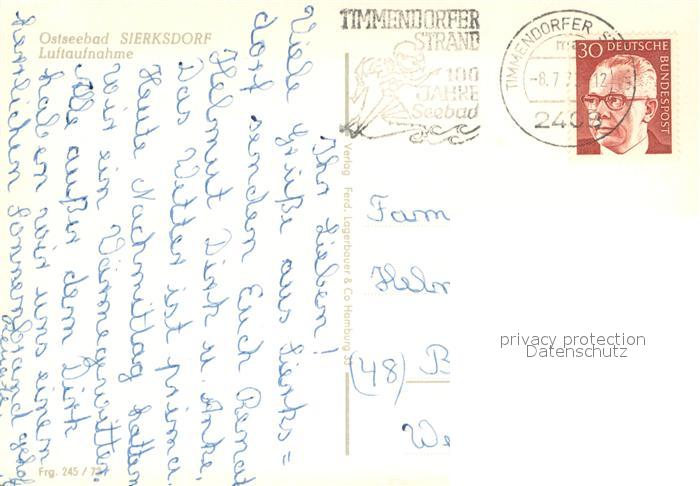 Ostseebad SIERKSDORF
Luftaufnahme
TIMMENDORFER
STRAND
100
JAHRE
Seebad
TIMMENDORFER ST
-8.7.7 12
2408
30 DEUTSCHE
BUNDESPOST
Ihr Lieben!
Viele Grüße aus Sierks=
dorf senden Euch Renat
Helmut Dirk u. Anke.
Das Wetter ist prima.
Heute Nachmittag hatten
wir ein Wärmegewitter.
Alle außer dem Dirk
haben wir uns einen
herrlichen Sonnenbrand geholt
Verlag Ferd. Lagerbauer & Co Hamburg 33
Fam
Helm
(48) B
We
privacy protection
Datenschutz
Frg. 245 / 72